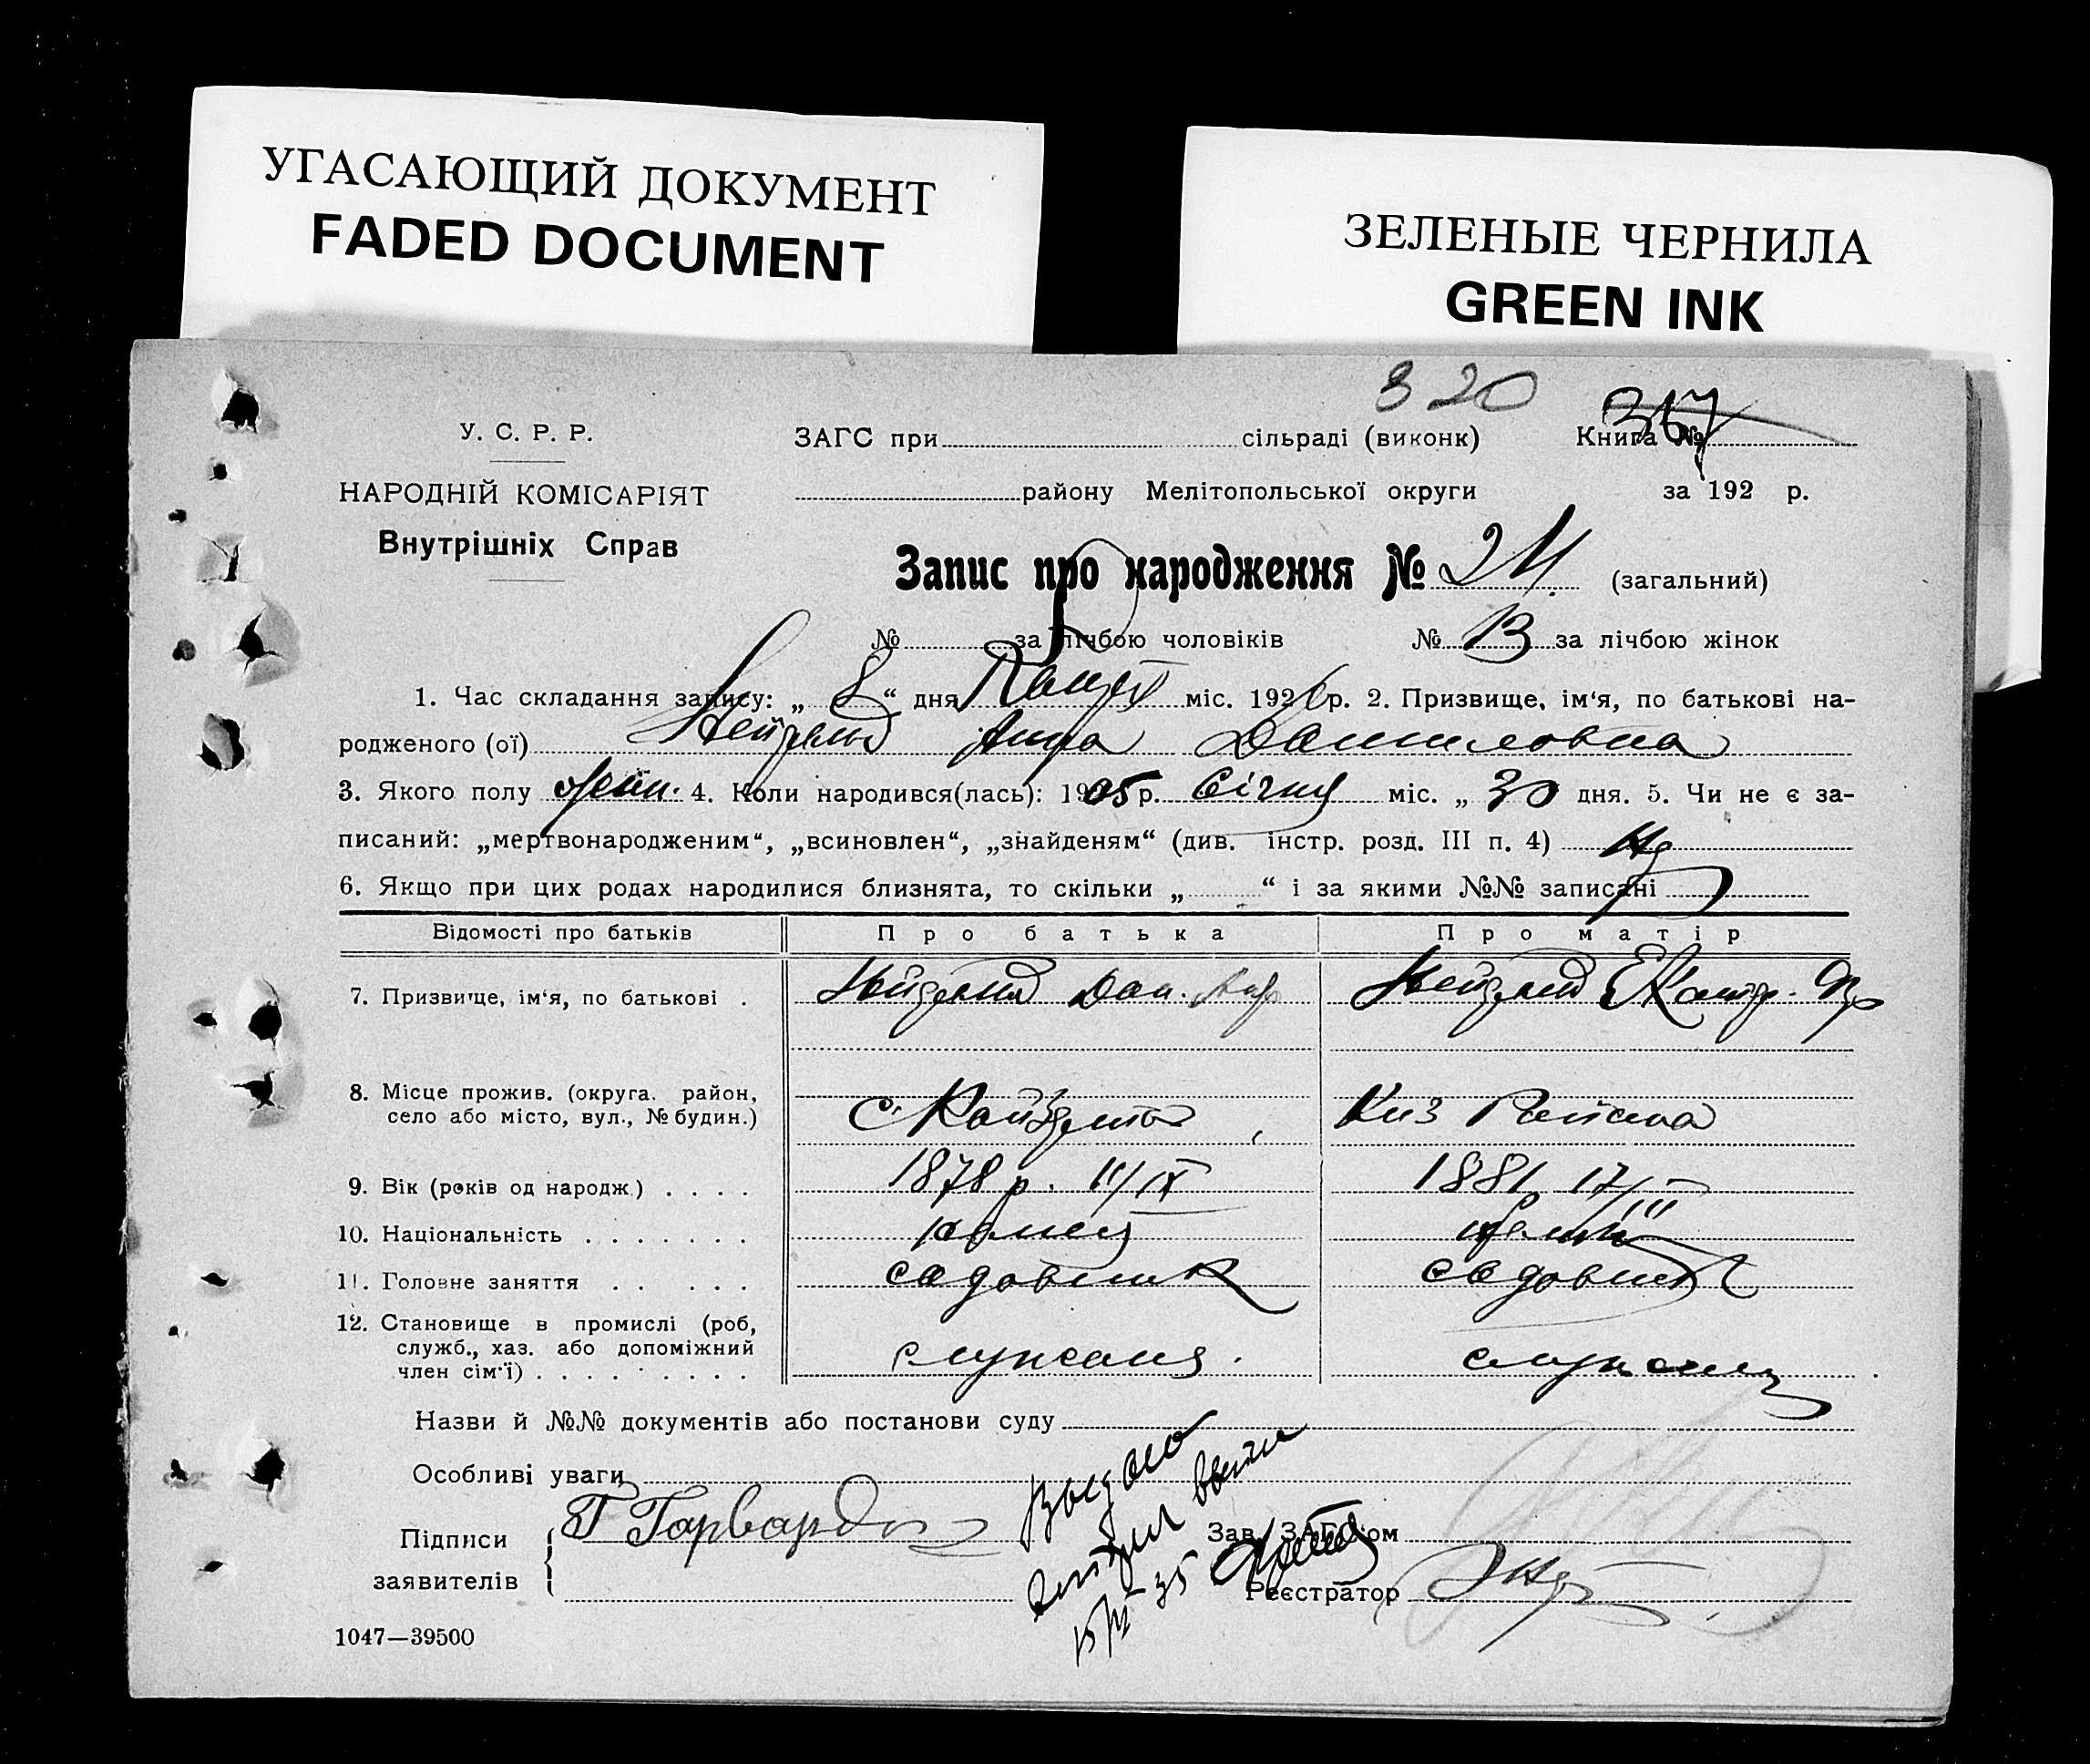 УГАСАЮЩИЙ ДОКУМЕНТ
FADED DOCUMENT
ЗЕЛЕНЫЕ ЧЕРНИЛА
GREEN INK
320
367
У. С. Р. Р.
ЗАГС при сільраді (виконк) Книга №
НАРОДНІЙ КОМІСАРІЯТ
району Мелітопольської округи за 192 р.
Внутрішніх Справ
Запис про народження № 24 (загальний)
№ за лічбою чоловіків № 13 за лічбою жінок
1. Час складання запису: „ 8 “ дня міс. 1926 р. 2. Призвище, ім‘я, по батькові на-
родженого (ої) Анна Даниловна
3. Якого полу жін. 4. Коли народився(лась): 1905 р. Січня міс. „ 30 дня. 5. Чи не є за-
писаний: „мертвонародженим“, „всиновлен“, „знайденям“ (див. інстр. розд. III п. 4) Ні
6. Якщо при цих родах народилися близнята, то скільки „ “ і за якими №№ записані
Відомості про батьків Про батька Про матір
7. Призвище, ім‘я, по батькові . Дан.
8. Місце прожив. (округа. район,
село або місто, вул., № будин.)
с.
9. Вік (років од народж.) . . . . 1878 р. 11/IX 1881 17/III
10. Національність . . . . . . . німець
11. Головне заняття . . . . . садовник садовник
12. Становище в промислі (роб,
служб., хаз. або допоміжний
член сім‘ї) . . . . . . . . . служащ.
Назви й №№ документів або постанови суду
Особливі уваги
Підписи
заявителів
Г Гарвардт
Выдано
15/VI 35
Зав. ЗАГС‘ом
Реєстратор
1047—39500